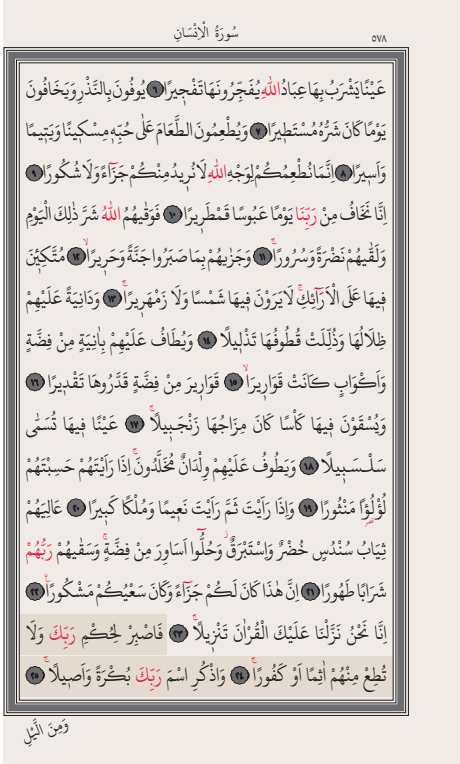 سُورَةُ الْاِنْسَانِ ٥٧٨
عَيْنًا يَشْرَبُ بِهَا عِبَادُ اللّٰهِ يُفَجِّرُونَهَا تَفْجِيرًا ﴿٦﴾ يُوفُونَ بِالنَّذْرِ وَيَخَافُونَ
يَوْمًا كَانَ شَرُّهُ مُسْتَطِيرًا ﴿٧﴾ وَيُطْعِمُونَ الطَّعَامَ عَلٰى حُبِّهٖ مِسْكِينًا وَيَتِيمًا
وَاَسِيرًا ﴿٨﴾ اِنَّمَا نُطْعِمُكُمْ لِوَجْهِ اللّٰهِ لَا نُرِيدُ مِنْكُمْ جَزَٓاءً وَلَا شُكُورًا ﴿٩﴾
اِنَّا نَخَافُ مِنْ رَبِّنَا يَوْمًا عَبُوسًا قَمْطَرِيرًا ﴿١٠﴾ فَوَقٰيهُمُ اللّٰهُ شَرَّ ذٰلِكَ الْيَوْمِ
وَلَقّٰيهُمْ نَضْرَةً وَسُرُورًاۚ ﴿١١﴾ وَجَزٰيهُمْ بِمَا صَبَرُوا جَنَّةً وَحَرِيرًاۙ ﴿١٢﴾ مُتَّكِـِٔينَ
فِيهَا عَلَى الْاَرَٓائِكِۚ لَا يَرَوْنَ فِيهَا شَمْسًا وَلَا زَمْهَرِيرًاۚ ﴿١٣﴾ وَدَانِيَةً عَلَيْهِمْ
ظِلَالُهَا وَذُلِّلَتْ قُطُوفُهَا تَذْلِيلًا ﴿١٤﴾ وَيُطَافُ عَلَيْهِمْ بِاٰنِيَةٍ مِنْ فِضَّةٍ
وَاَكْوَابٍ كَانَتْ قَوَارِيرَا۬ۙ ﴿١٥﴾ قَوَارِيرَ مِنْ فِضَّةٍ قَدَّرُوهَا تَقْدِيرًا ﴿١٦﴾
وَيُسْقَوْنَ فِيهَا كَأْسًا كَانَ مِزَاجُهَا زَنْجَبِيلًاۚ ﴿١٧﴾ عَيْنًا فِيهَا تُسَمّٰى
سَلْسَبِيلًا ﴿١٨﴾ وَيَطُوفُ عَلَيْهِمْ وِلْدَانٌ مُخَلَّدُونَۚ اِذَا رَاَيْتَهُمْ حَسِبْتَهُمْ
لُؤْلُؤًا مَنْثُورًا ﴿١٩﴾ وَاِذَا رَاَيْتَ ثَمَّ رَاَيْتَ نَعِيمًا وَمُلْكًا كَبِيرًا ﴿٢٠﴾ عَالِيَهُمْ
ثِيَابُ سُنْدُسٍ خُضْرٌ وَاِسْتَبْرَقٌۘ وَحُلُّٓوا اَسَاوِرَ مِنْ فِضَّةٍۚ وَسَقٰيهُمْ رَبُّهُمْ
شَرَابًا طَهُورًا ﴿٢١﴾ اِنَّ هٰذَا كَانَ لَكُمْ جَزَٓاءً وَكَانَ سَعْيُكُمْ مَشْكُورًا۟ ﴿٢٢﴾
اِنَّا نَحْنُ نَزَّلْنَا عَلَيْكَ الْقُرْاٰنَ تَنْزِيلًاۚ ﴿٢٣﴾ فَاصْبِرْ لِحُكْمِ رَبِّكَ وَلَا
تُطِعْ مِنْهُمْ اٰثِمًا اَوْ كَفُورًاۚ ﴿٢٤﴾ وَاذْكُرِ اسْمَ رَبِّكَ بُكْرَةً وَاَصِيلًاۚ ﴿٢٥﴾
وَمِنَ الَّيْلِ